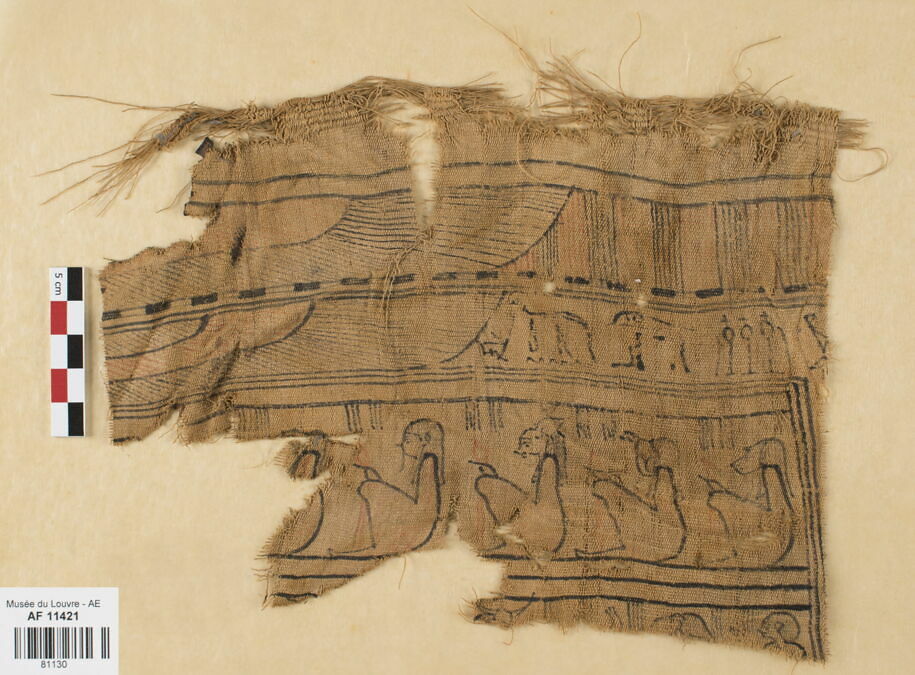 5 cm
Musée du Louvre - AE
AF 11421
81130